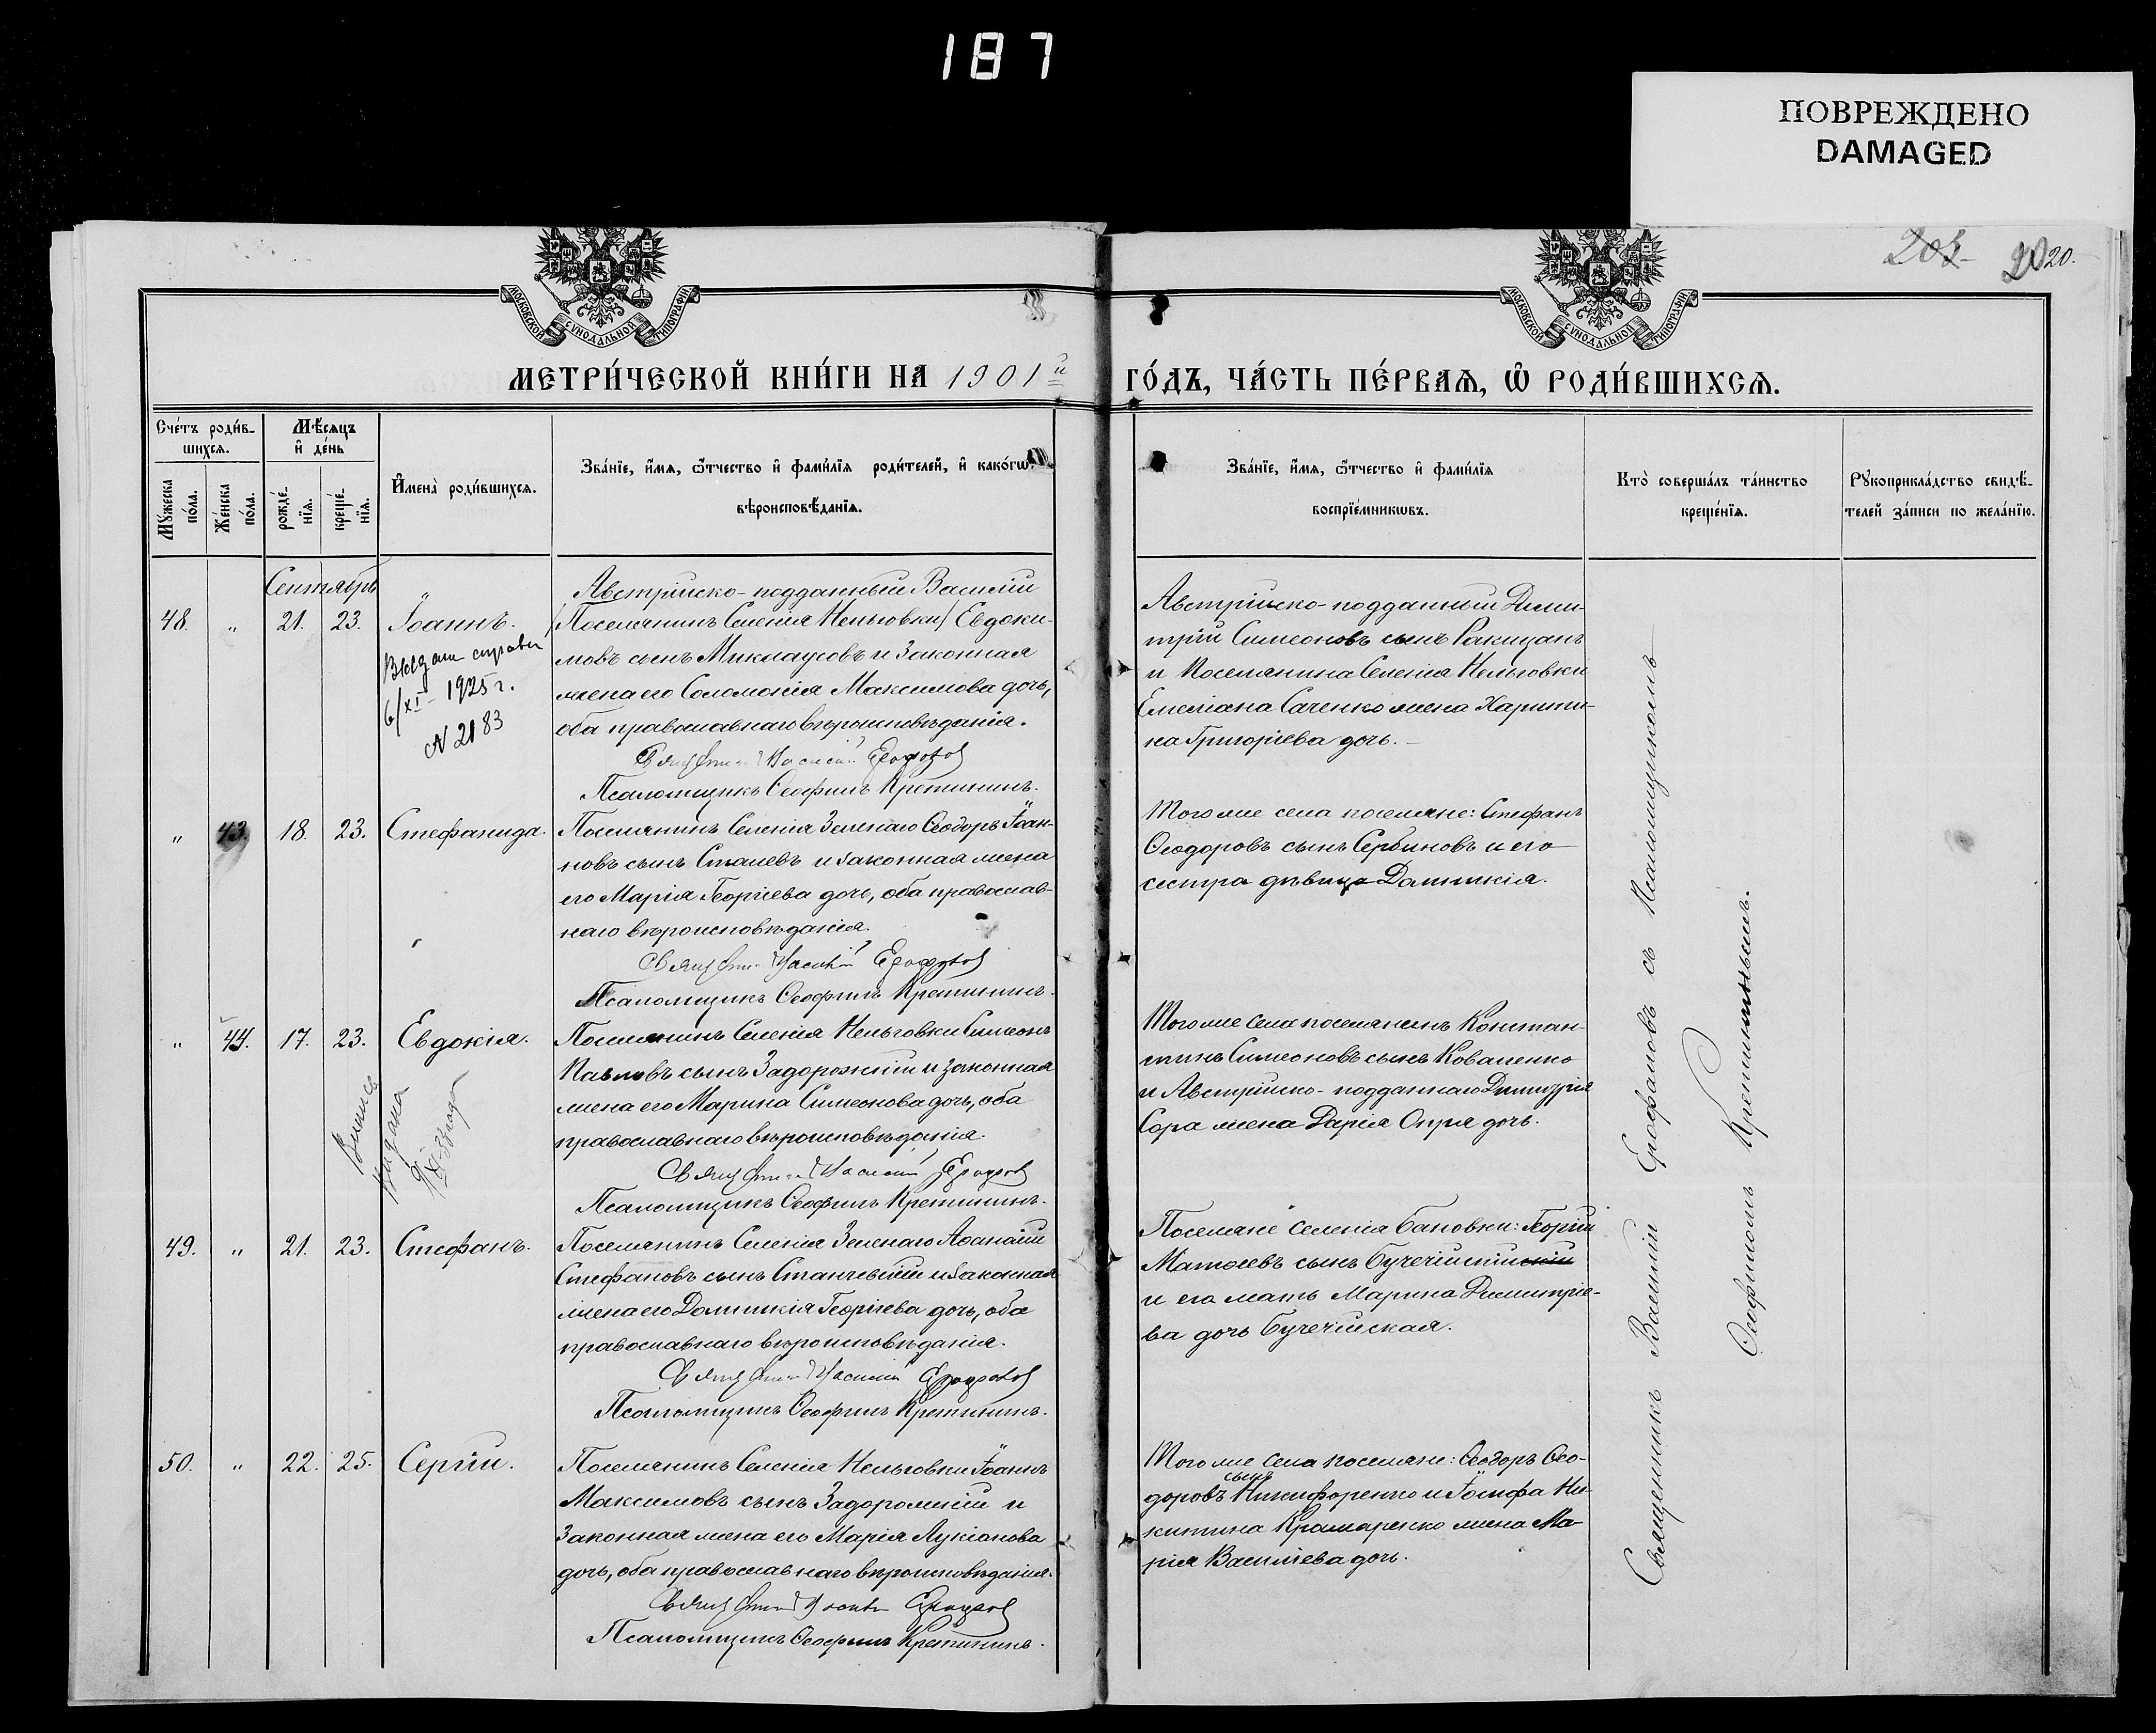 187
ПОВРЕЖДЕНО
DAMAGED
20.
МОСКОВСКОЙ СѴНОДАЛЬНОЙ ТИПОГРАФІИ
МОСКОВСКОЙ СѴНОДАЛЬНОЙ ТИПОГРАФІИ
МЕТРИ́ЧЕСКОЙ КНИ́ГИ НА 1901й ГО́ДЪ, ЧА́СТЬ ПЕ́РВАѦ, Ѿ РОДИ́ВШИХСѦ.
Сче́тъ роди́в-
шихсѧ.
Мѣ́сѧцъ
и҆ де́нь
Мꙋ́жеска по́ла.
Же́нска по́ла.
рожде́-
нїѧ.
креще́-
нїѧ.
И҆мена̀ роди́вшихсѧ.
Зва́нїе, и҆́мѧ, ѻ҆́тчество и҆ фами́лїѧ роди́телей, и҆ како́гѡ
вѣроисповѣ́данїѧ.
Зва́нїе, и҆́мѧ, ѻ҆́тчество и҆ фами́лїѧ
воспрїе́мникѡвъ.
Кто̀ соверша́лъ та́инство
креще́нїѧ.
Рꙋкоприкла́дство свидѣ́-
телей за́писи по жела́нїю.
Сентябрь
48. " 21. 23. Іоаннъ.
Выдана справка
6/XI - 1925 г.
N 2183
Австрійско-подданный Василій
(Поселянинъ Селенія Нельговки) Евдоки-
мовъ сынъ Миклаусовъ и Законная
жена его Соломонія Максимова дочь,
оба православнаго вѣроисповѣданія.
Священникъ Василій Ерофаловъ
Псаломщикъ Ѳеофилъ Кретининъ.
Австрійско-подданный Дими-
трій Симеоновъ сынъ Ракицанъ
и Поселянина Селенія Нельговки
Емеліана Саченко жена Харити-
на Григоріева дочь.
" 43. 18. 23. Стефанида.
Поселянинъ Селенія Зеленаго Ѳеодоръ Іоан-
новъ сынъ Сталевъ и Законная жена
его Марія Георгіева дочь, оба православ-
наго вѣроисповѣданія.
Священникъ Василій Ерофаловъ
Псаломщикъ Ѳеофилъ Кретининъ.
Того же села поселяне: Стефанъ
Ѳеодоровъ сынъ Сербиновъ и его
сестра дѣвица Домникія.
" 44. 17. 23. Евдокія.
выдана
Поселянинъ Селенія Нельговки Симеонъ
Павловъ сынъ Задорожній и законная
жена его Марина Симеонова дочь, оба
православнаго вѣроисповѣданія.
Священникъ Василій Ерофаловъ
Псаломщикъ Ѳеофилъ Кретининъ.
Того же Села поселянинъ Констан-
тинъ Симеоновъ сынъ Коваленко
и Австрійско-подданнаго Димитрія
Сора жена Дарія Опря дочь.
49. " 21. 23. Стефанъ.
Поселянинъ Селенія Зеленаго Аѳанасій
Стефановъ сынъ Станчевскій и Законная
жена его Домникія Георгіева дочь, оба
православнаго вѣроисповѣданія.
Священникъ Василій Ерофаловъ
Псаломщикъ Ѳеофилъ Кретининъ.
Поселяне Селенія Бановки: Георгій
Матѳеевъ сынъ
и его мать Марина Димитріе-
ва дочь Бучечійская.
50. " 22. 25. Сергій.
Поселянинъ Селенія Нельговки Іоаннъ
Максимовъ сынъ Задорожній и
Законная жена его Марія Лукіанова
дочь, оба православнаго вѣроисповѣданія.
Священникъ Василій Ерофаловъ
Псаломщикъ Ѳеофилъ Кретининъ.
Того же Села поселяне: Ѳеодоръ Ѳео-
доровъ сынъ Никифоренко и Іосифа Ни-
китина Крамаренко жена Ма-
рія Василіева дочь.
Священникъ Василій Ерофаловъ съ Псаломщикомъ
Ѳеофиломъ Кретининымъ.